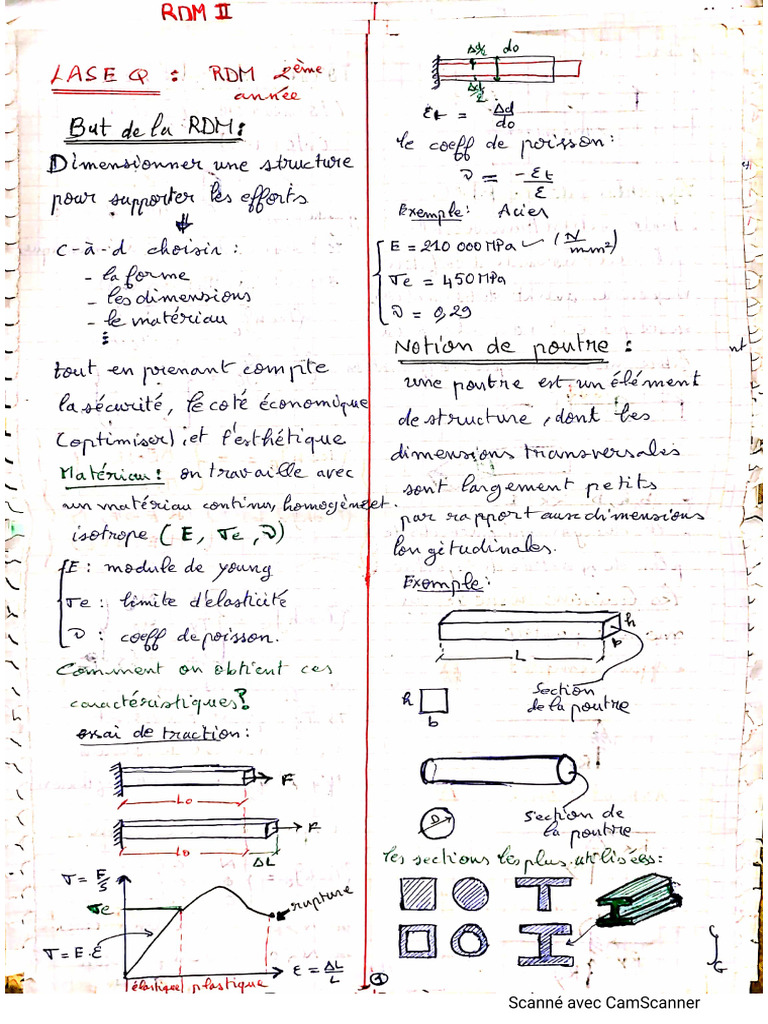 RDM II
LASEQ : RDM 2ème
année
But de la RDM :
Dimensionner une structure
pour supporter les efforts
c-à-d choisir :
- la forme
- les dimensions
- le matériau
tout en prenant compte
la sécurité, le coté économique
(optimiser), et l'esthétique
Matériau : on travaille avec
un matériau continu, homogène et
isotrope (E, σe, ν)
E : module de young
σe : limite d'élasticité
ν : coeff de poisson.
Comment on obtient ces
caractéristiques ?
essai de traction :
F
L0
F
L0 ΔL
σ = F/S
σe
rupture
σ = E.ε
ε = ΔL/L
élastique plastique
Δd/2 d0
Δd/2
εt = Δd/d0
le coeff de poisson :
ν = -εt/ε
Exemple : Acier
E = 210 000 MPa (N/mm²)
σe = 450 MPa
ν = 0,29
Notion de poutre :
une poutre est un élément
de structure, dont les
dimensions transversales
sont largement petits
par rapport aux dimensions
longitudinales.
Exemple :
h
b
L
section
de la poutre
h
b
section de
la poutre
D
les sections les plus utilisées :
1
Scanné avec CamScanner